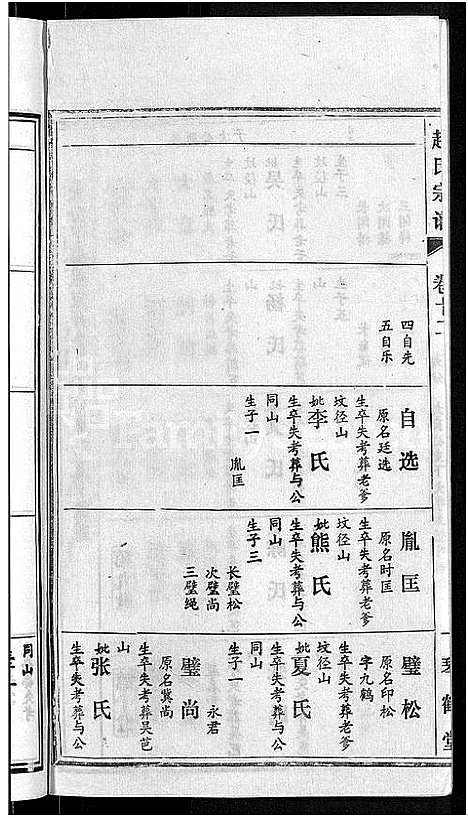 赵氏宗谱
卷十二
琴鹤堂
四自先
五自乐
自选
原名廷选
生卒失考葬老爹
坟径山
妣李氏
生卒失考葬与公
同山
生子一
胤匡
胤匡
原名时匡
生卒失考葬老爹
坟径山
妣熊氏
生卒失考葬与公
同山
生子三
长璧松
次璧尚
三璧绳
璧松
原名印松
字九鹤
生卒失考葬老爹
坟径山
妣夏氏
生卒失考葬与公
同山
生子一
永君
璧尚
原名冀尚
生卒失考葬吴芭
山
妣张氏
生卒失考葬与公
同山